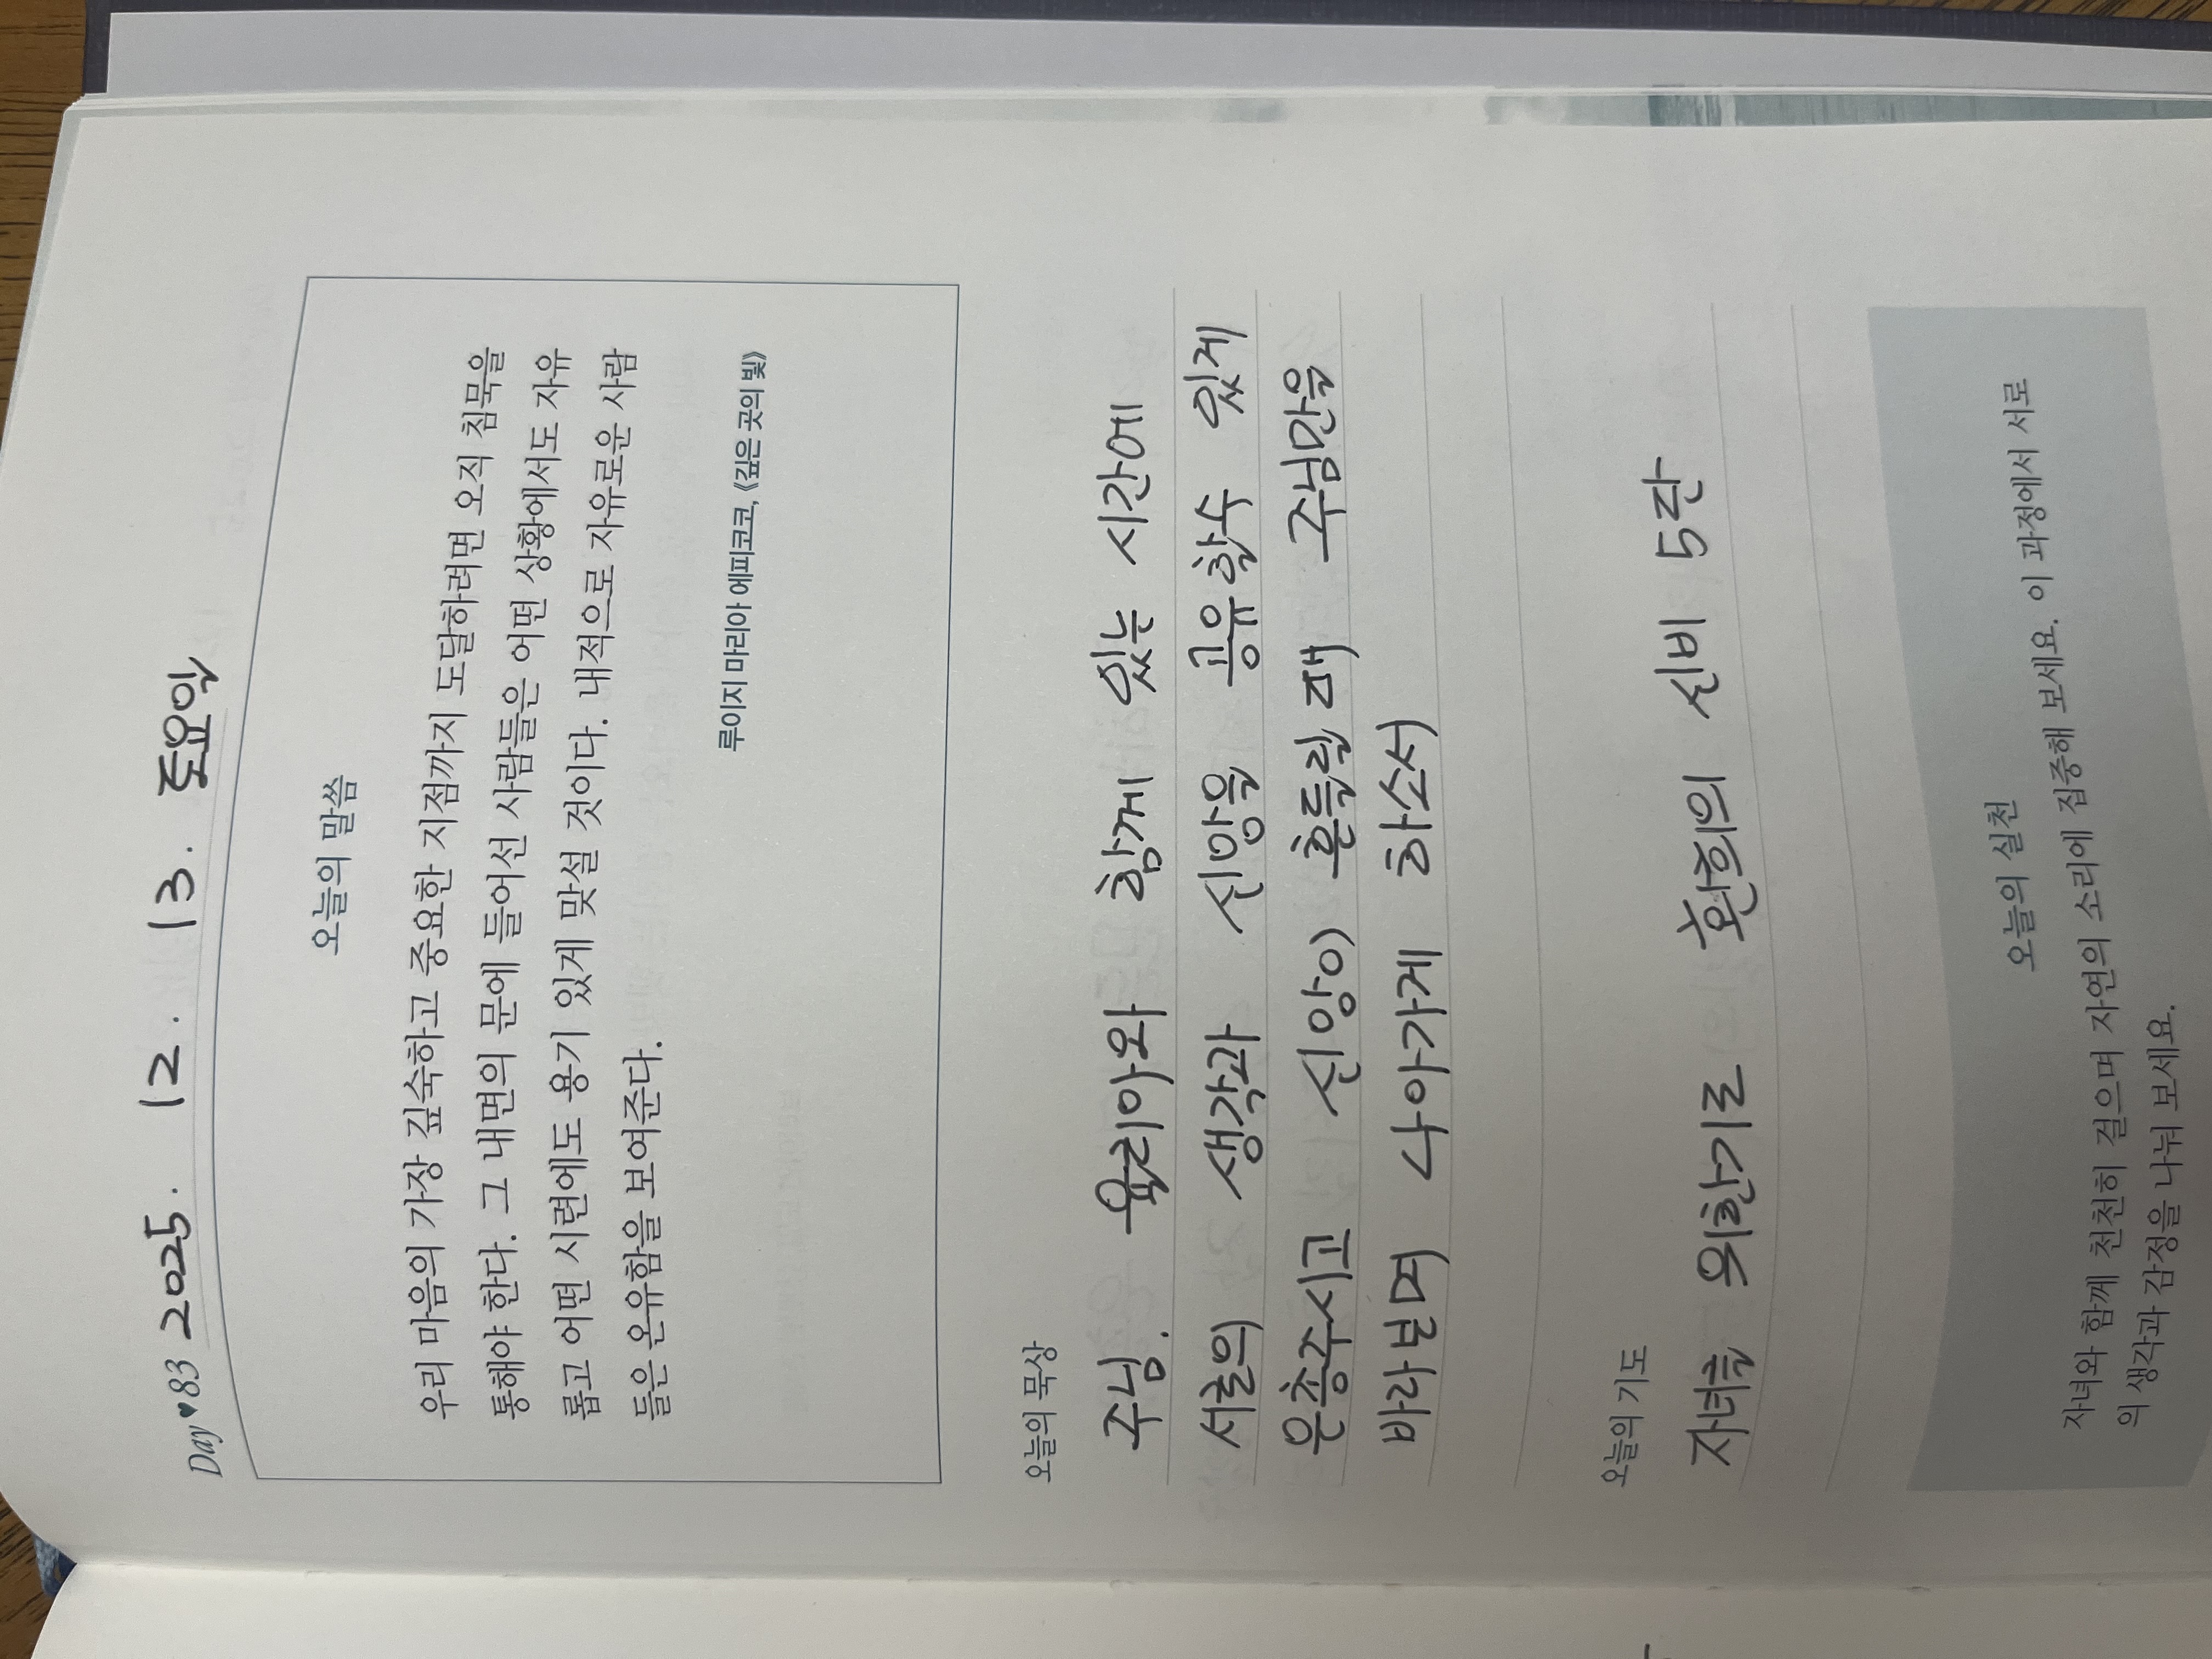 Day♥83 2025. 12. 13. 토요일
오늘의 말씀
우리 마음의 가장 깊숙하고 중요한 지점까지 도달하려면 오직 침묵을
통해야 한다. 그 내면의 문에 들어선 사람들은 어떤 상황에서도 자유
롭고 어떤 시련에도 용기 있게 맞설 것이다. 내적으로 자유로운 사람
들은 온유함을 보여준다.
루이지 마리아 에피코코, 《깊은 곳의 빛》
오늘의 묵상
주님. 율리아와 함께 있는 시간에
서로의 생각과 신앙을 공유할수 있게
은총주시고 신앙이 흔들릴 때 주님만을
바라보며 나아가게 하소서
오늘의 기도
자녀를 위한기도 환희의 신비 5단
오늘의 실천
자녀와 함께 천천히 걸으며 자연의 소리에 집중해 보세요. 이 과정에서 서로
의 생각과 감정을 나눠 보세요.